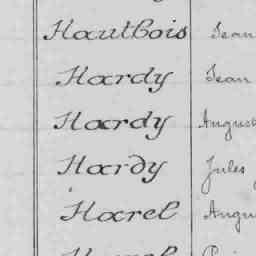 Hautbois Jean
Hardy Jean
Hardy August
Hardy Jules
Harel Augu